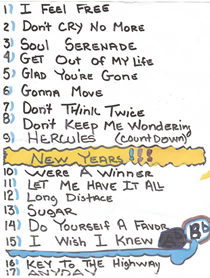 1) I Feel Free
2) Don't Cry No More
3) Soul Serenade
4) Get Out of My Life
5) Glad You're Gone
6) Gonna Move
7) Don't Think Twice
8) Don't Keep Me Wondering
9) Hercules (Countdown)
New Years!!!
10) Were A Winner
11) Let Me Have It All
12) Long Distace
13) Sugar
14) Do Yourself A Favor
15) I Wish I Knew Bb
16) Key To The Highway
17) Anyday